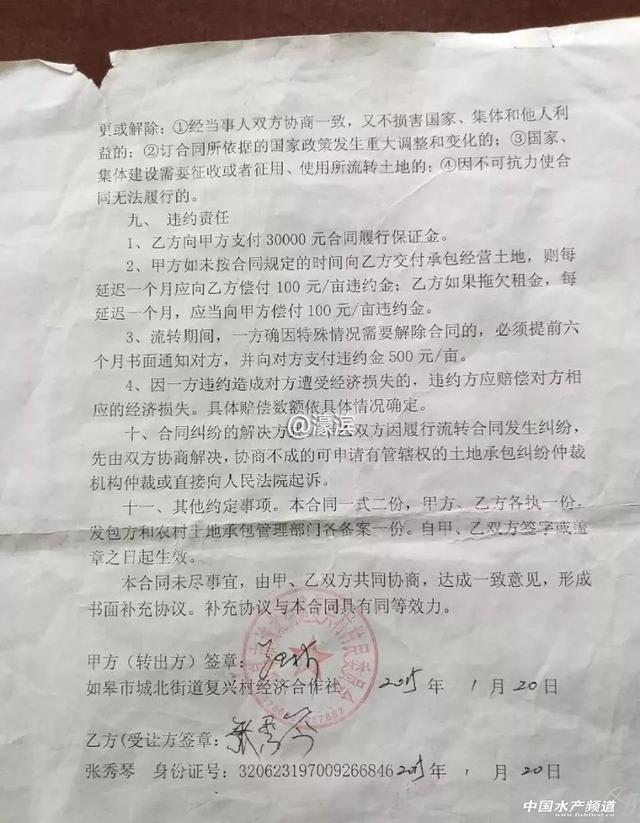 更或解除：①经当事人双方协商一致，又不损害国家、集体和他人利
益的；②订合同所依据的国家政策发生重大调整和变化的；③国家、
集体建设需要征收或者征用、使用所流转土地的；④因不可抗力使合
同无法履行的。
九、违约责任
1、乙方向甲方支付30000元合同履行保证金。
2、甲方如未按合同规定的时间向乙方交付承包经营土地，则每
延迟一个月应向乙方偿付100元/亩违约金；乙方如果拖欠租金，每
延迟一个月，应当向甲方偿付100元/亩违约金。
3、流转期间，一方确因特殊情况需要解除合同的，必须提前六
个月书面通知对方，并向对方支付违约金500元/亩。
4、因一方违约造成对方遭受经济损失的，违约方应赔偿对方相
应的经济损失。具体赔偿数额依具体情况确定。
@濠滨
十、合同纠纷的解决方 乙双方因履行流转合同发生纠纷，
先由双方协商解决，协商不成的可申请有管辖权的土地承包纠纷仲裁
机构仲裁或直接向人民法院起诉。
十一、其他约定事项。本合同一式二份，甲方、乙方各执一份，
发包方和农村土地承包管理部门各备案一份。自甲、乙双方签字或盖
章之日起生效。
本合同未尽事宜，由甲、乙双方共同协商，达成一致意见，形成
书面补充协议。补充协议与本合同具有同等效力。
甲方（转出方）签章：
如皋市城北街道复兴村经济合作社 2015年1月20日
乙方(受让方签章：张秀琴
张秀琴 身份证号：320623197009266846 2015年1月20日
中国水产频道
www.fishfirst.cn